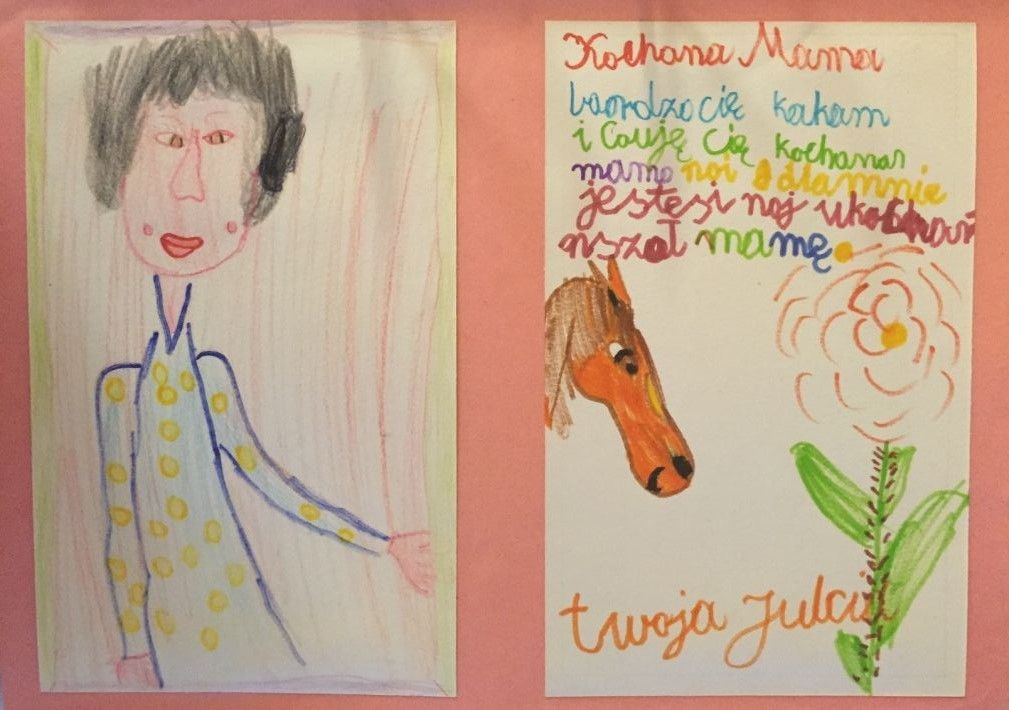 Kochana Mama
baardzo cię kakam
i Cauję cię kochana
mamo noi dlamnie
jestęsi naj ukochań
nszą mamę.
twoja Julcia